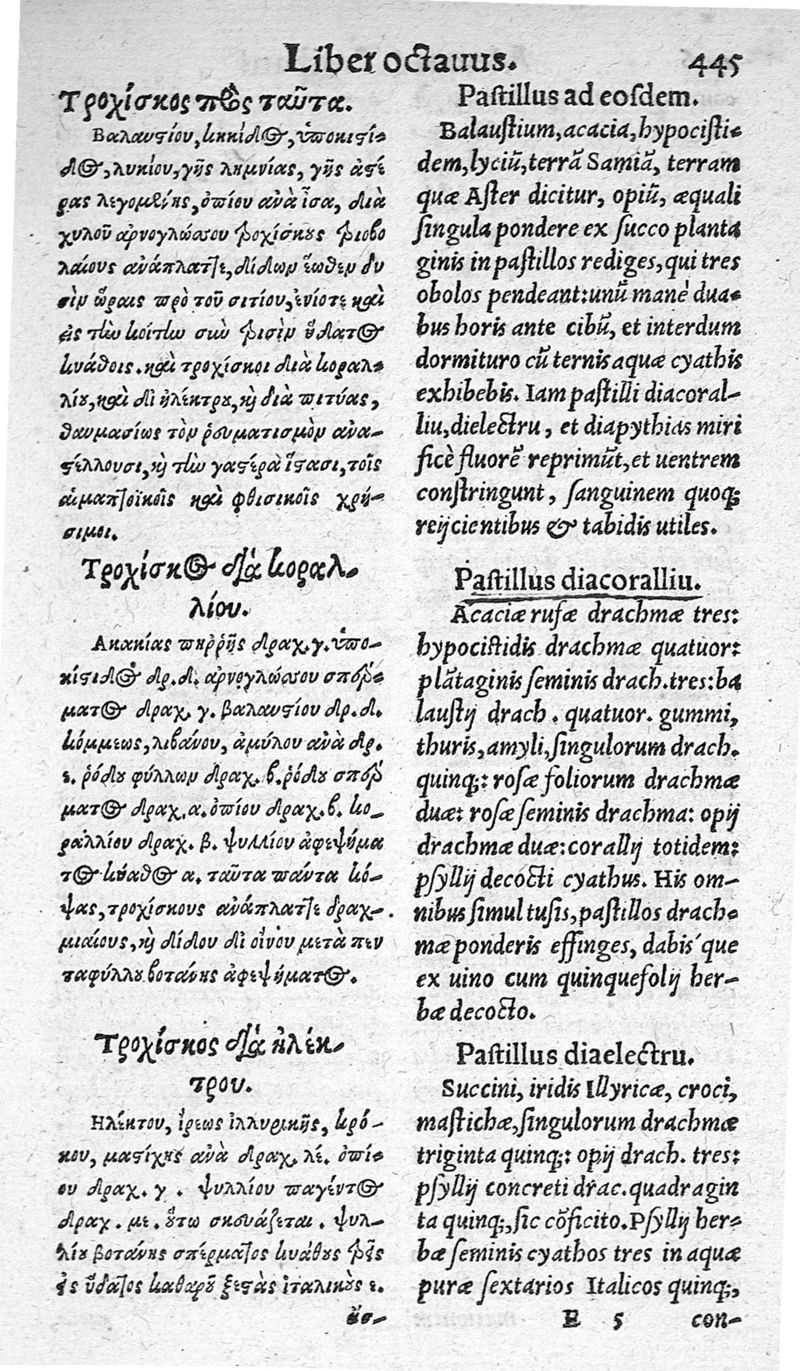 Liber octauus. 445
Τροχίσκος πρὸς ταῦτα.
Βαλαυστίου, κηκίδος, ὑποκιστί-
δος, λυκίου, γῆς λημνίας, γῆς ἀστέ
ρος λεγομένης, ὀπίου ἀνὰ ἶσα, διὰ
χυλοῦ ἀρνογλώσσου τροχίσκους τριοβο
λαίους ἀνάπλαττε, δίδωμ ἕωθεν δυ
σὶν ὥραις πρὸ τοῦ σιτίου, ἐνίοτε καὶ
εἰς τὴν κοίτην σὺν τρισὶν ὕδατος
κυάθοις. καὶ τροχίσκοι διὰ κοραλ-
λίου, καὶ δι ἠλέκτρου, καὶ διὰ πιτύας,
θαυμασίως τὸν ῥευματισμὸν ἀνα-
στέλλουσι, καὶ τὴν γαστέρα ἵστασι, τοῖς
αἱμαπτοϊκοῖς καὶ φθισικοῖς χρή-
σιμοι.
Τροχίσκος διὰ κοραλ-
λίου.
Ακακίας πυῤῥῆς δραχ. γ. ὑπο-
κιστίδος δρ. δ. ἀρνογλώσσου σπέρ-
ματος δραχ. γ. βαλαυστίου δρ. δ.
κόμμεως, λιβάνου, ἀμύλου ἀνὰ δρ.
ε. ῥόδου φύλλων δραχ. β. ῥόδου σπέρ
ματος δραχ. α. ὀπίου δραχ. β. κο-
ραλλίου δραχ. β. ψυλλίου ἀφεψήμα
τος κύαθος α. ταῦτα πάντα κό-
ψας, τροχίσκους ἀνάπλαττε δραχ-
μιαίους, καὶ δίδου δι οἴνου μετὰ πεν
ταφύλλου βοτάνης ἀφεψήματος.
Τροχίσκος διὰ ἠλέκ-
τρου.
Ηλέκτου, ἴρεως ἰλλυρικῆς, κρό-
κου, μαστίχης ἀνὰ δραχ. λέ. ὀπί-
ου δραχ. γ. ψυλλίου παγέντος
δραχ. με. οὕτω σκευάζεται. ψυλ-
λίου βοτάνης σπέρματος κυάθους τρεῖς
εἰς ὕδατος καθαροῦ ξέστας ἰταλικοὺς ε.
ἄσ-
Pastillus ad eosdem.
Balaustium, acacia, hypocisti-
dem, lyciũ, terrã Samiã, terram
quæ Aster dicitur, opiũ, æquali
singula pondere ex succo planta
ginis in pastillos rediges, qui tres
obolos pendeant: unũ manè dua-
bus horis ante cibũ, et interdum
dormituro cũ ternis aquæ cyathis
exhibebis. Iam pastilli diacoral-
liu, dielectru, et diapythias miri
ficè fluorẽ reprimũt, et uentrem
constringunt, sanguinem quoq;
reijcientibus & tabidis utiles.
Pastillus diacoralliu.
Acaciæ rufæ drachmæ tres:
hypocistidis drachmæ quatuor:
plãtaginis seminis drach. tres: ba
laustij drach. quatuor. gummi,
thuris, amyli, singulorum drach.
quinq;: rosæ foliorum drachmæ
duæ: rosæ seminis drachma: opij
drachmæ duæ: corallij totidem:
psyllij decocti cyathus. His om-
nibus simul tusis, pastillos drach-
mæ ponderis effinges, dabis'que
ex uino cum quinquefolij her-
bæ decocto.
Pastillus diaelectru.
Succini, iridis Illyricæ, croci,
mastichæ, singulorum drachmæ
triginta quinq;: opij drach. tres:
psyllij concreti drac. quadragin
ta quinq;, sic cõficito. Psyllij her-
bæ seminis cyathos tres in aquæ
puræ sextarios Italicos quinq;,
E 5 con-